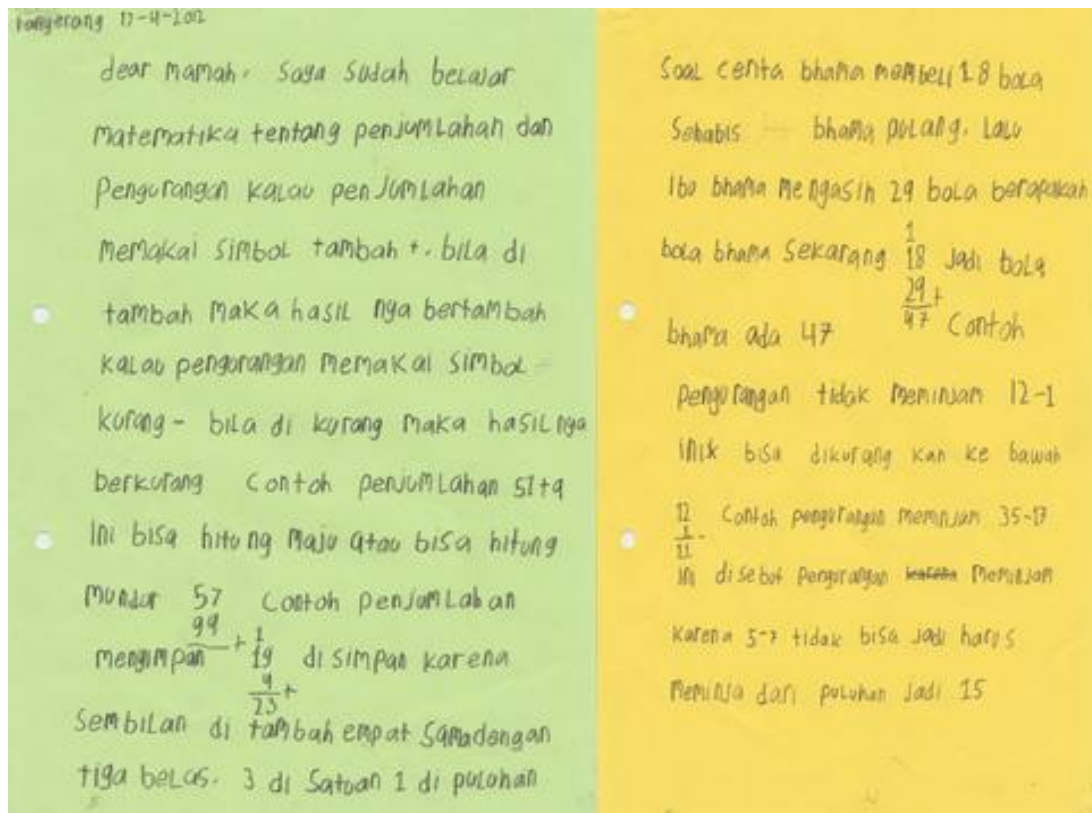 Tangerang 17-4-202
dear mamah. Saya Sudah belajar
matematika tentang penjumlahan dan
Pengurangan kalau penjumlahan
memakai simbol tambah +. bila di
tambah maka hasil nya bertambah
kalau pengurangan memakai simbol -
kurang - bila di kurang maka hasil nya
berkurang Contoh penjumlahan
Ini bisa hitung maju atau bisa hitung
mundur 57 Contoh penjumlahan
+ 1
mengimpan 19 di simpan karena
+
23
Sembilan di tambah empat Samadengan
tiga belas. 3 di Satuan 1 di puluhan
Soal cerita bhama membeli 18 bola
Sehabis bhama pulang. Lalu
Ibu bhama mengasih 29 bola berapakah
1
bola bhama Sekarang 18 jadi bola
29 +
bhama ada 47 47 Contoh
pengurangan tidak meminjam 12-1
bisa dikurang kan ke bawah
12 Contoh pengurangan meminjam 35-17
1 -
11
ini disebut Pengurangan karena Meminjam
karena 5-7 tidak bisa jadi harus
Meminja dari puluhan Jadi 15